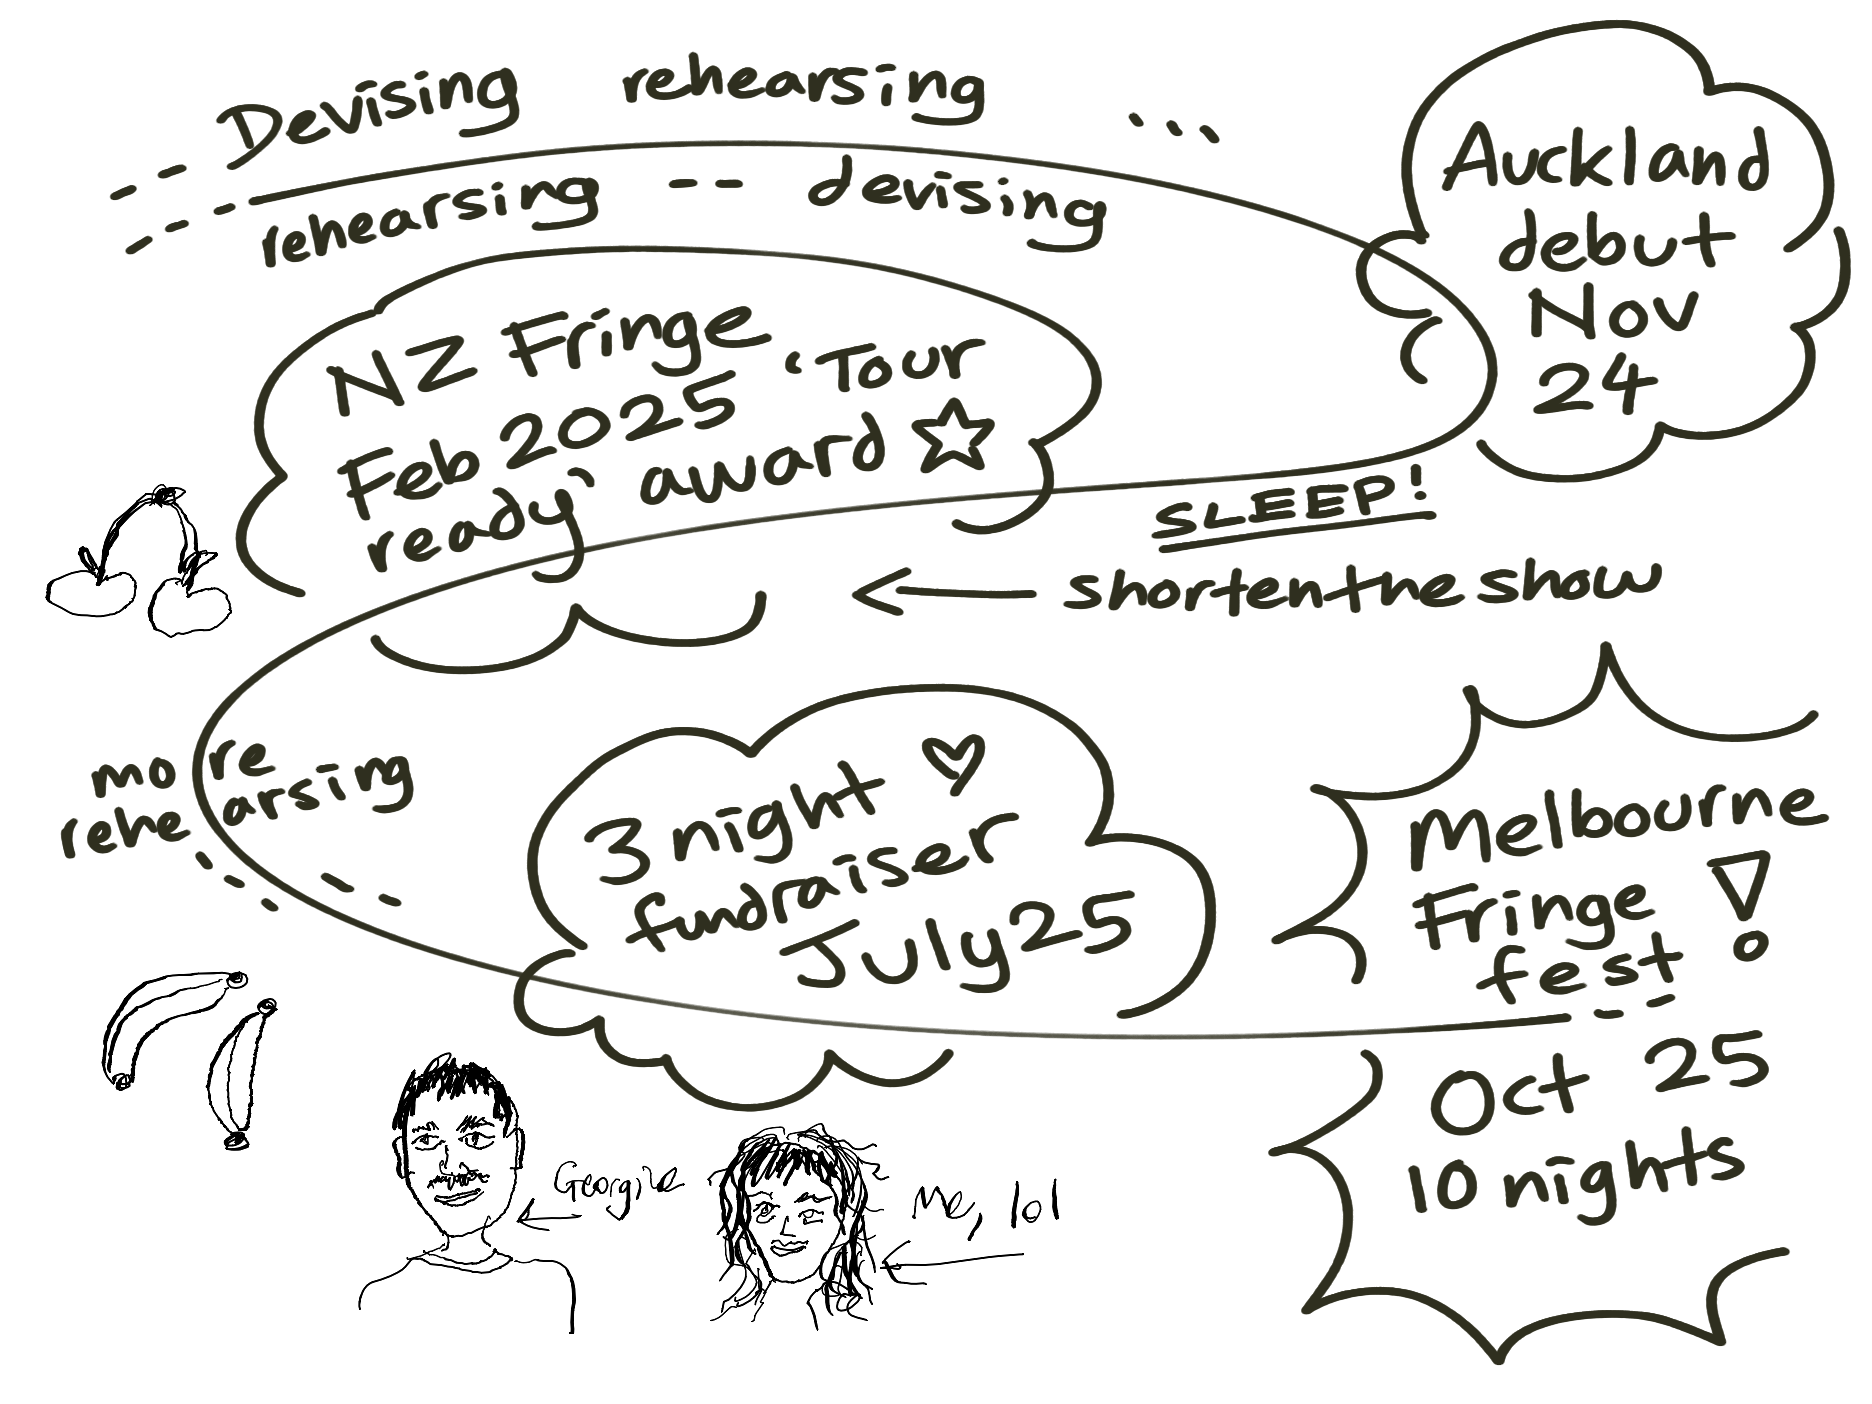 Devising rehearsing ...
rehearsing -- devising
Auckland
debut
Nov
24
NZ Fringe
Feb 2025 'Tour
ready' award
SLEEP!
← shorten the show
more
rehearsing
3 night
fundraiser
July 25
Melbourne
Fringe
fest!
Oct 25
10 nights
Me, lol